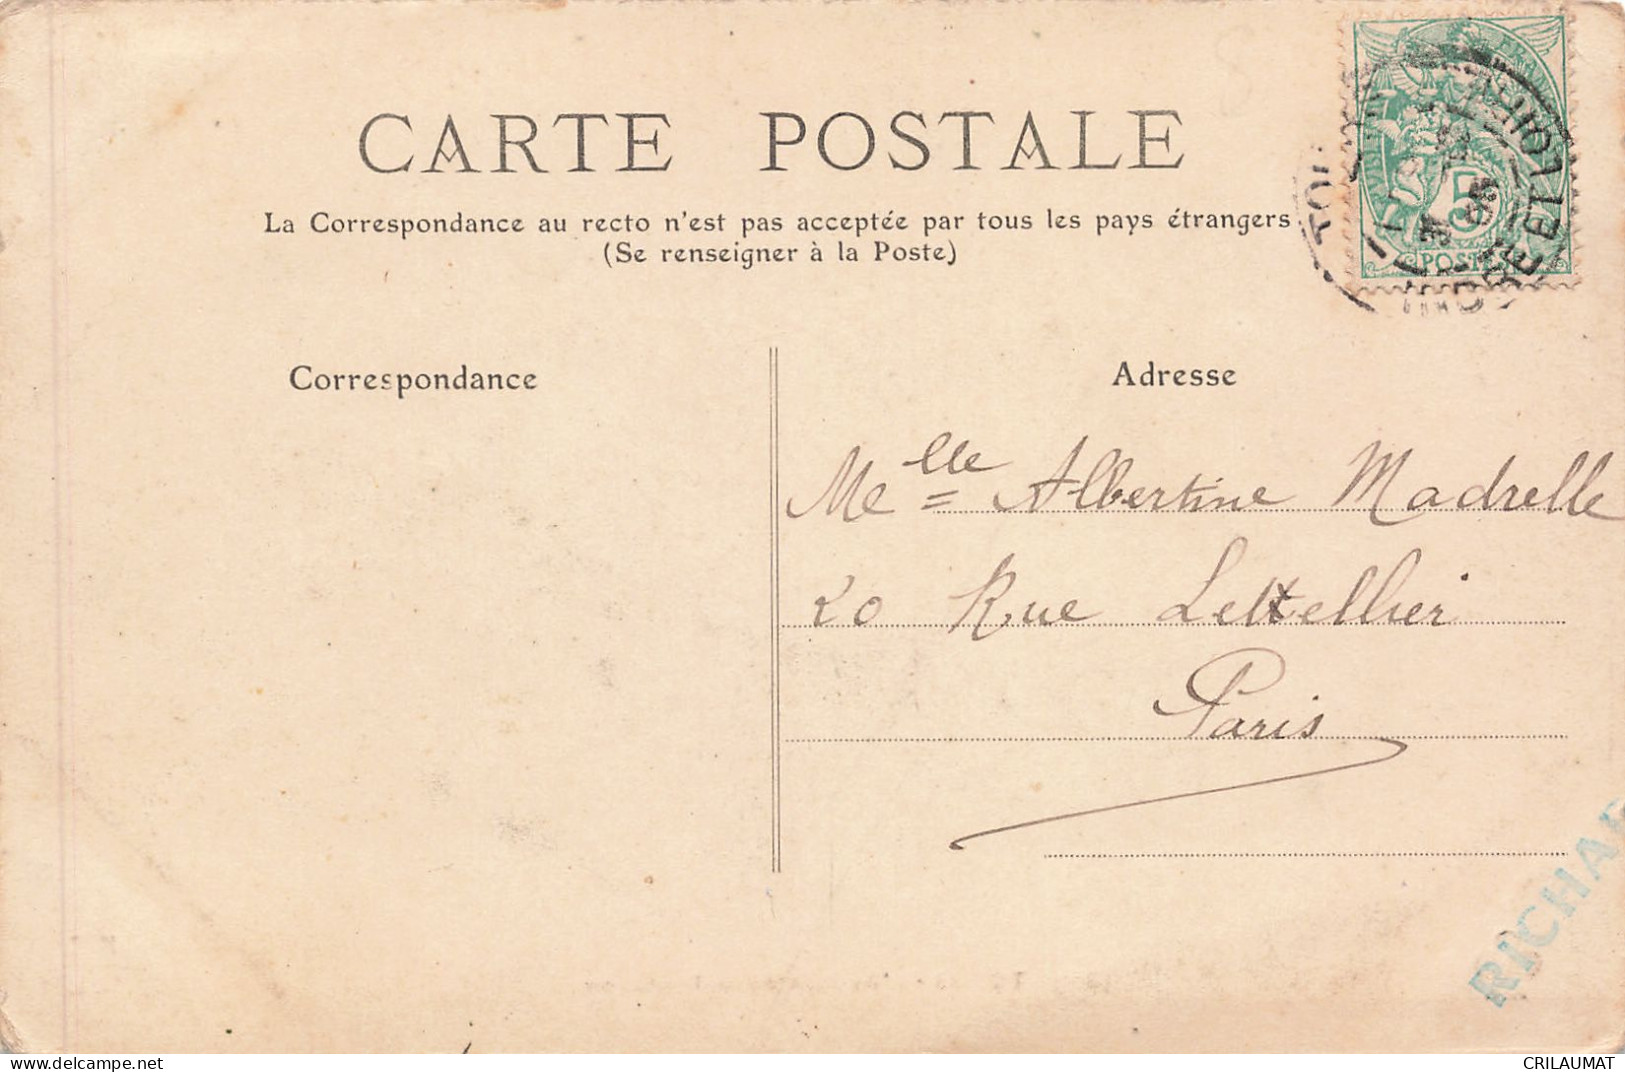 CARTE POSTALE
La Correspondance au recto n'est pas acceptée par tous les pays étrangers
(Se renseigner à la Poste)
5
POSTES
ET LOIRE
Correspondance
Adresse
Melle Albertine Madrelle
20 Rue Lettellier
Paris
RICHAR
delcampe.net
CRILAUMAT